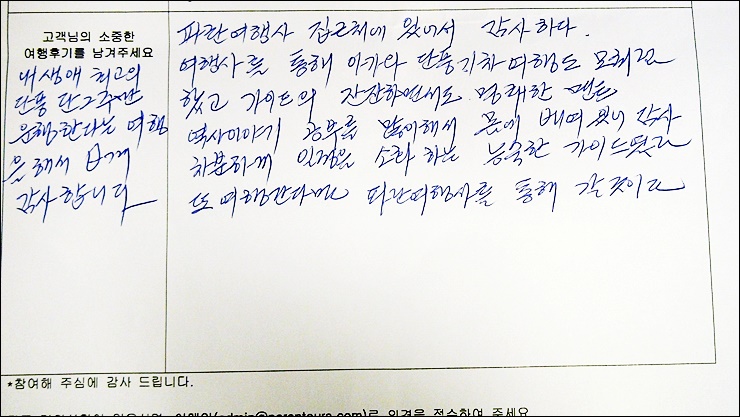 고객님의 소중한
여행후기를 남겨주세요
내 생애 최고의
단풍 단 2주만
운행한다는 여행
을 해서
감사합니다
파란여행사 집근처에 있어서 감사하다.
여행사를 통해 아가와 단풍기차여행도
했고 가이드의 잔잔하면서도 명쾌한 멘트
역사이야기 공부를 많이해서 몸에 배여 있어 감사
차분하게 일정을 소화 하는 능숙한 가이드였고
또 여행간다면 파란여행사를 통해 갈것이다
*참여해 주심에 감사 드립니다.
의견을 접수하여 주세요